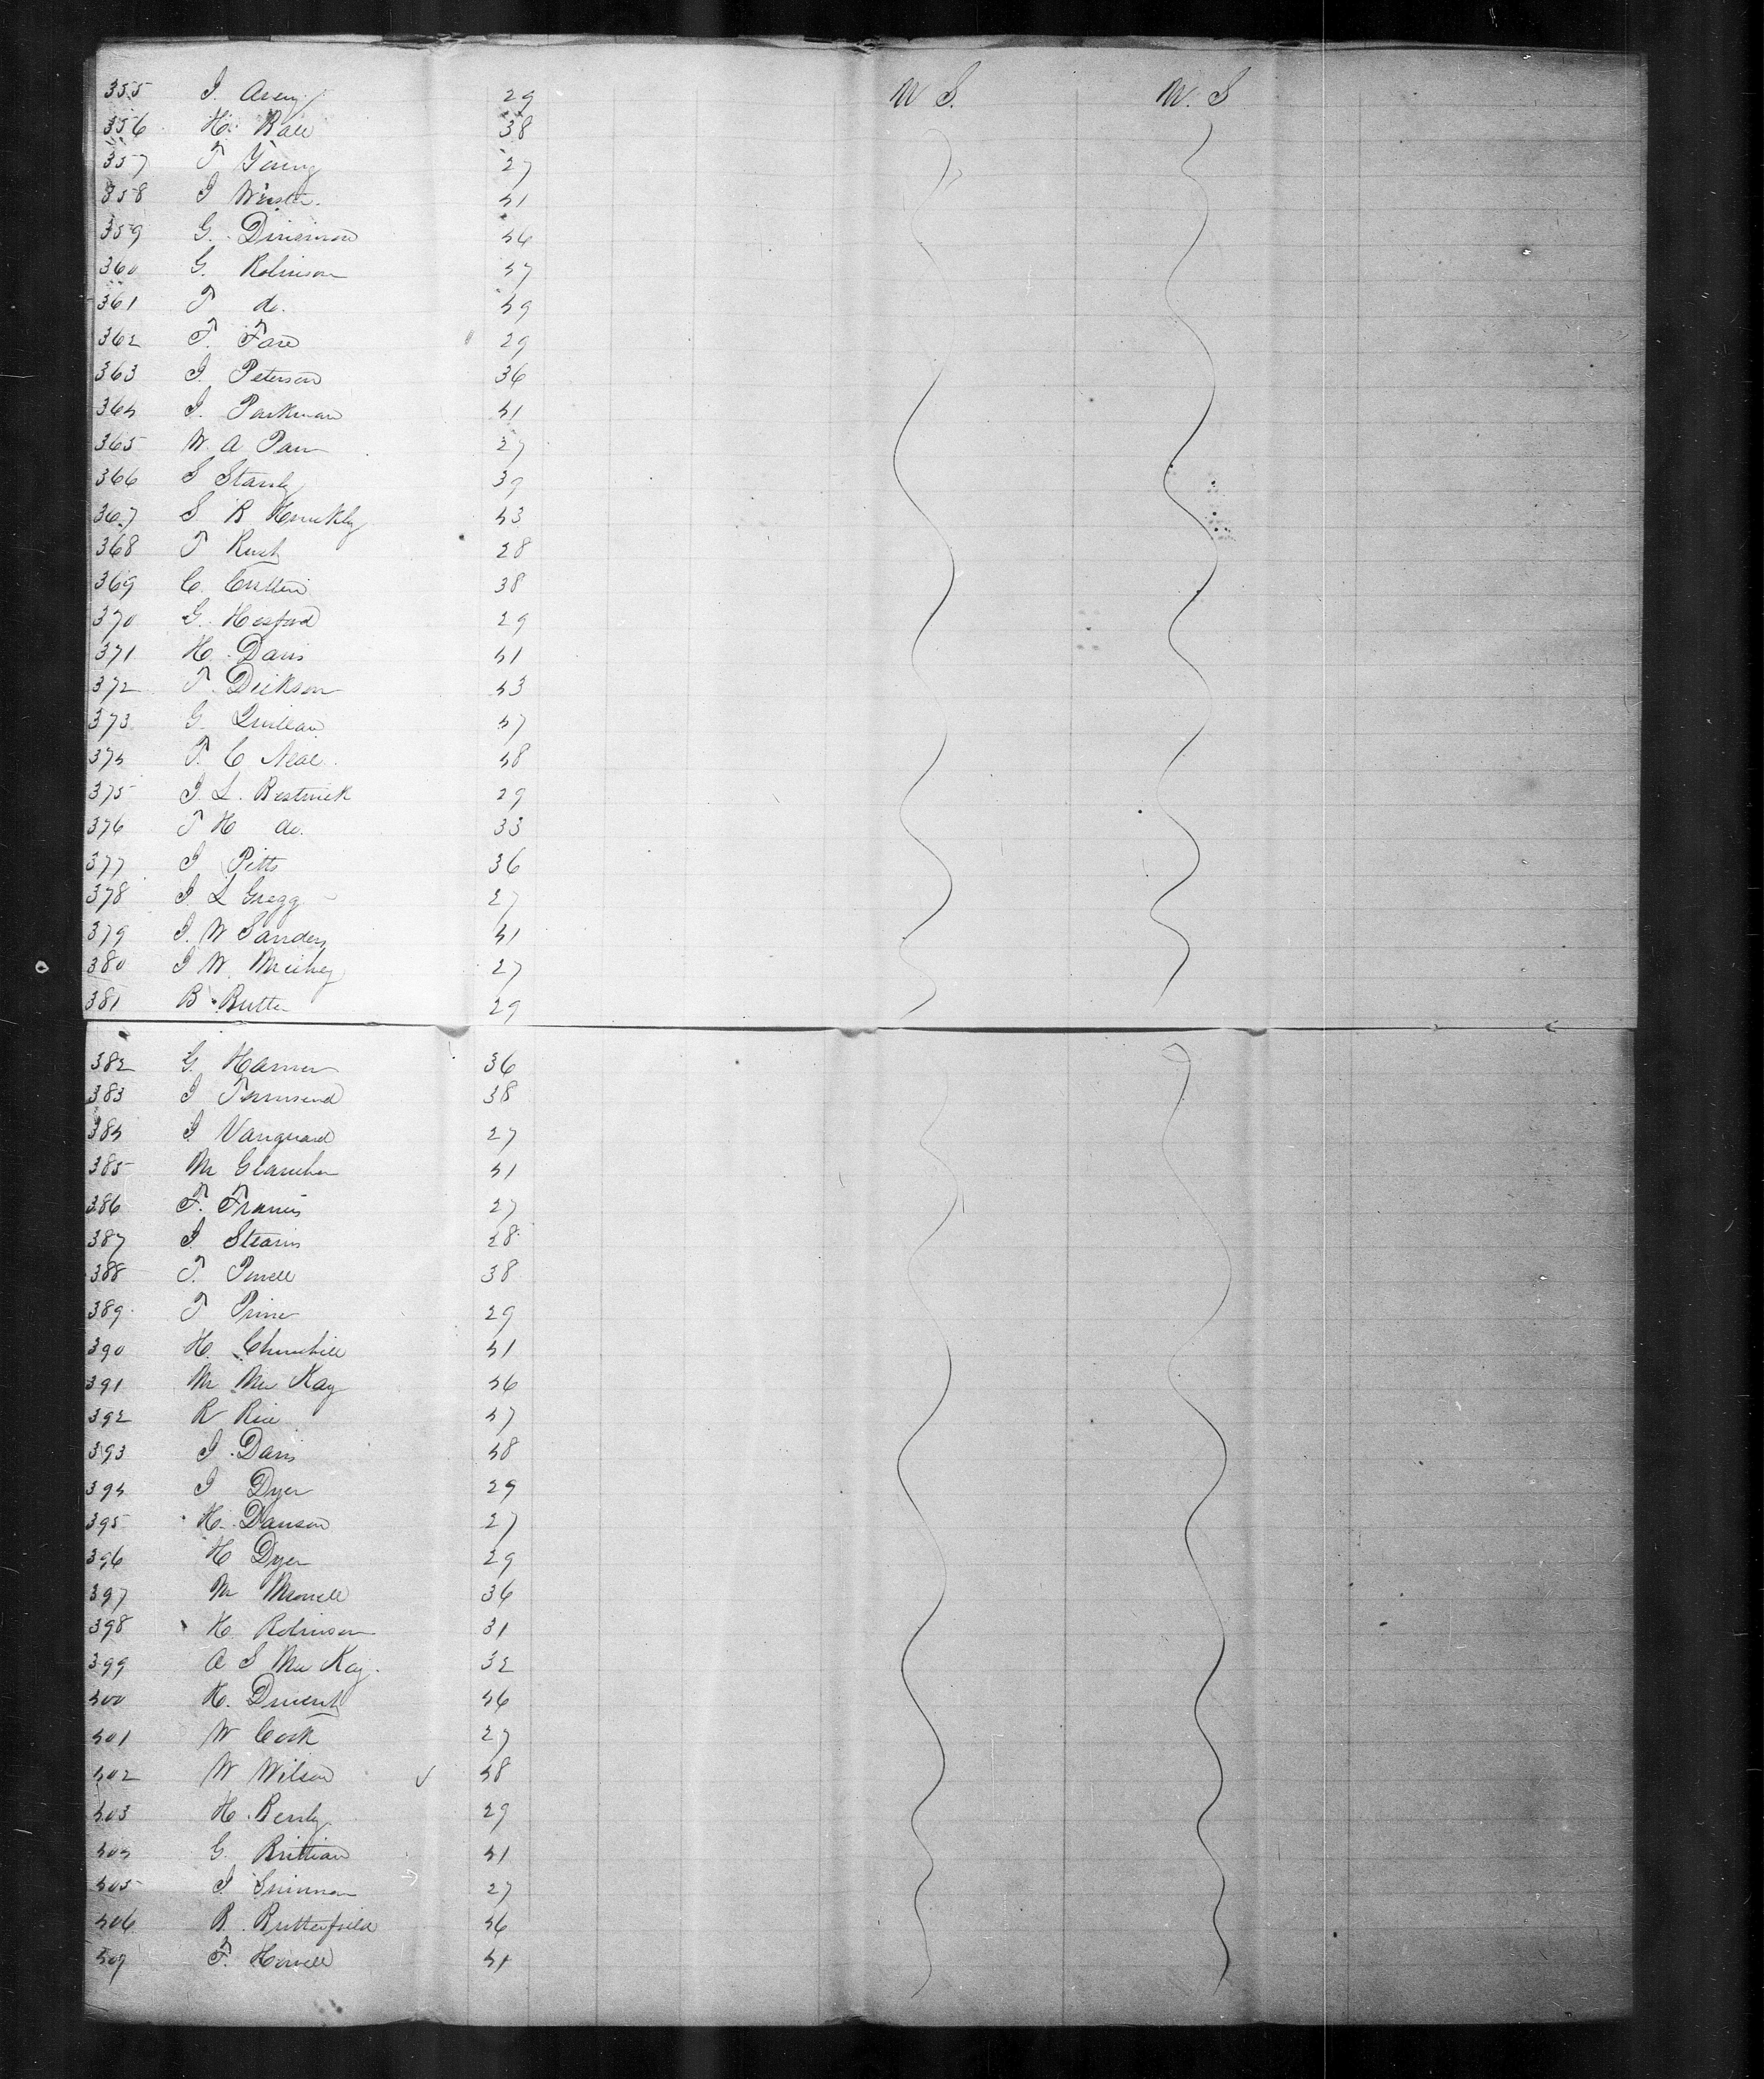 355 J. Avery 29 U S. U. S
356 H. Ball 38
357 T Young 27
358 J Wister. 41
359 G. Dinsmore 46
360 G. Robinson 47
361 T do. 49
362 T. Fare 29
363 J. Peterson 36
364 J. Parkman 41
365 W. A Parr 27
366 S Stanly 39
367 S R Hinckly 43
368 T Rush 28
369 C. 38
370 G. Hosford 29
371 H. Davis 41
372 T. Dickson 43
373 G. Quillan 47
374 T. C Neal. 48
375 J. L. Bestwick 29
376 T H do. 33
377 J Pitts 36
378 J. L Gregg 27
379 J. W Sanders 41
380 J W. 27
381 B. Butler 29
382 G. Hanner 36
383 J Townsend 38
384 J Vanguard 27
385 M 41
386 F. Francis 27
387 J Stearns 28
388 T. Powell 38
389 T Prime 29
390 H. Churchill 41
391 M Mc Kay 46
392 R Rice 47
393 J. Davis 48
394 J Dyer 29
395 H. Dawson 27
396 H Dyer 29
397 M 36
398 H. Robinson 31
399 A S Mc Kay. 32
400 H. 46
401 W Cook 27
402 W Wilson 48
403 H. Bently. 29
404 G. Brittian 41
405 J. 27
406 B. Butterfield 46
407 F. Howell 41